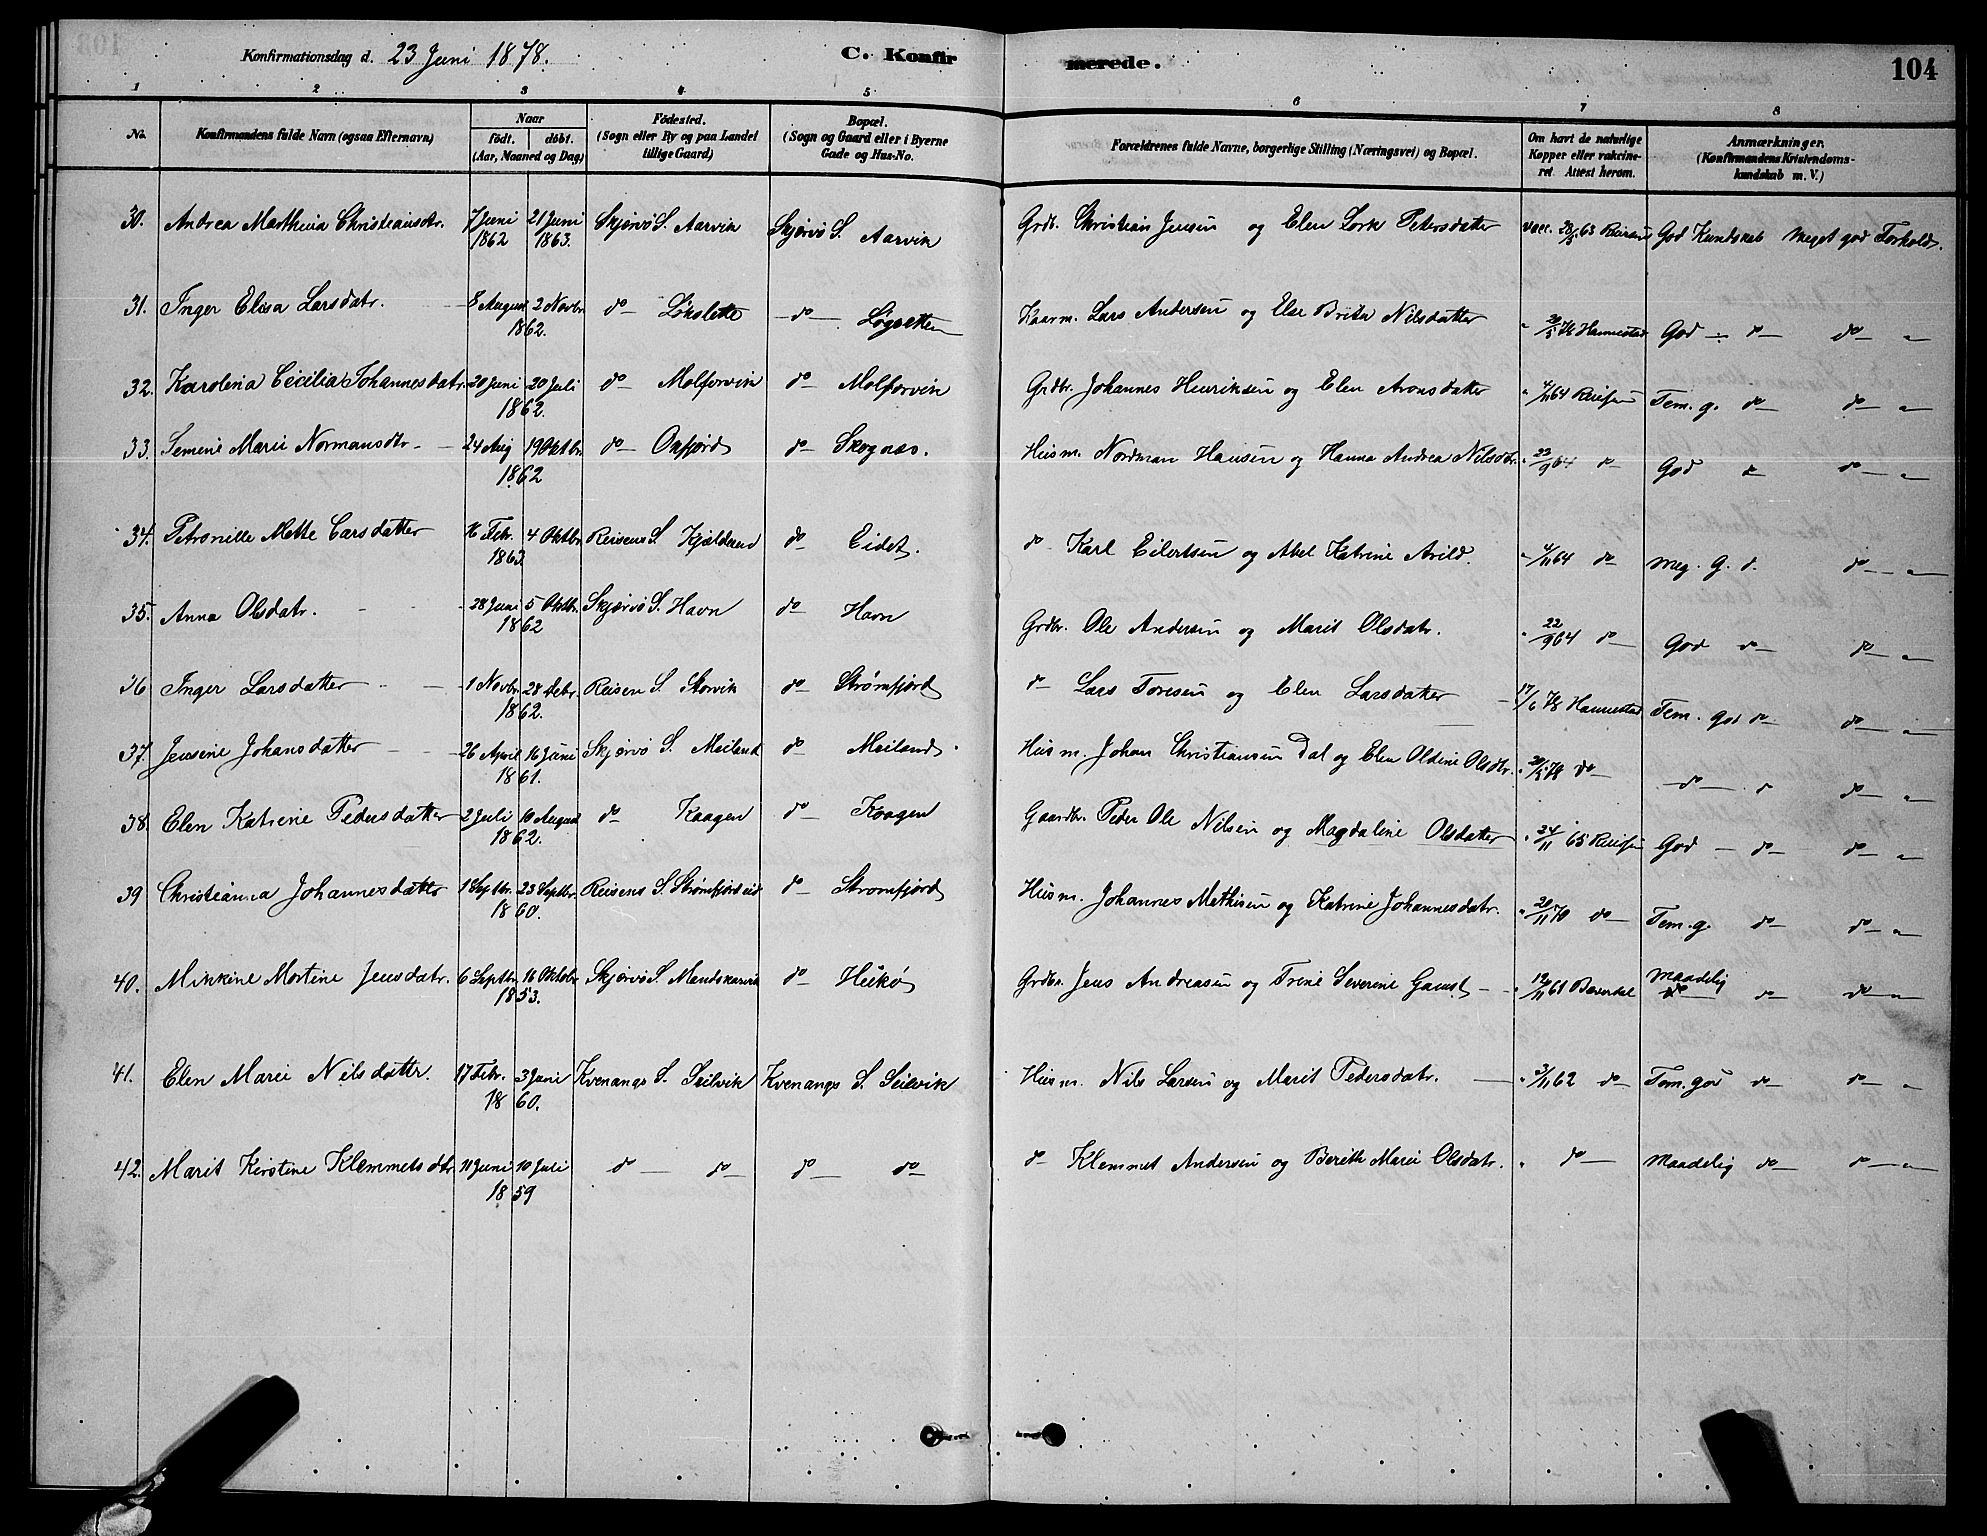 Konfirmationsdag d. 23 Juni 1878. C. Konfirmerede. 104
1 2 3 4 5 6 7 8
No. Konfirmandens fulde Navn (ogsaa Efternavn) Naar födt. döbt. (Aar, Maaned og Dag) Födested. (Sogn eller By og paa Landet tillige Gaard) Bopæl. (Sogn og Gaard eller i Byerne Gade og Hus-No. Forældrenes fulde Navne, borgerlige Stilling (Næringsvei) og Bopæl. Om havt de naturlige Kopper eller vakcineret. Attest herom. Anmærkninger. (Konfirmandens Kristendomskundskab m. V.)
30. Andrea Marthina Christiansdtr. 7 Juni 1862 21 Juni 1863. Skjervö S. Aarvik Skjervö S. Aarvik Grdbr. Christian Jensen og Elen Petersdatter Vacc. 28/5 63 God Kundskab Meget god Forhold.
31. Inger Elisa Larsdatr. 8 August 2 Novbr. 1862. do Lökslette do Løgsletten Kaarm. Lars Andersen og Else Brita Nilsdatter " 20/5 78 Hannestad God do do "
32. Karolina Cecilia Johannesdatr. 20 Juni 20 Juli 1862. do Molforvik do Molforvik Grdbr. Johannes Henriksen og Elen Aronsdatter " 4/11 64 Tem. g. do do "
33. Semine Marie Normansdtr. 24 Aug 19 Oktbr. 1862 do Oxfjord do Skognæs. Husm. Nordman Hansen og Hanna Andrea Nilsdtr. " 22/9 64 do God do "
34. Petronille Mette Carsdatter 16 Febr. 4 Oktbr. 1863 Reisens S. Kjelderen do Eidet. do Karl Eilertsen og Abel Katrine Arild. " 4/11 64 do Meg. G. d. do "
35. Anna Olsdatr. 28 Juni 5 Oktbr. 1862 Skjervö S. Havn do Havn Grdbr. Ole Andersen og Marit Olsdatr. " 22/9 64 do God do do "
36 Inger Larsdatter 1 Novbr. 28 Debr. 1862. Reisen S. Storvik do Strømfjord do Lars Toresen og Elen Larsdatter 17/6 78 Hannestad Tem. god do do "
37. Jensine Johansdatter 26 April 16 Juni 1861. Skjervö S. Meiland do Meiland. Husm. Johan Christiansen Dal og Elen Oldine Olsdtr. " 20/5 78 do do do "
38. Elen Katrine Pedersdatter 2 Juli 10 August 1862. do Kaagen do Kaagen Gaardbr. Peder Ole Nilsen og Magdaline Olsdatter " 24/11 65 God do do "
39 Christianna Johannesdatter 1 Septbr. 23 Septbr. 1860. Reisens S. Strømfjordeid do Strømfjord Husm. Johannes Mathisen og Katrine Johannesdatr. " 20/11 70 do Tem. g. do do "
40. Mikkine Mortine Jensdatr. 6 Septbr. 16 Oktobr. 1853. Skjervö S. do Heikø Grdbr. Jens Andreasen og Trine Severine Gamst " 12/11 61 Bæverdal Maadelig do do "
41. Elen Marie Nilsdattr. 17 Febr. 3 Juni 1860. Kvenangs S. Seilvik Kvenangs S. Seilvik Husm. Nils Larsen og Marit Pedersdatr. " 3/11 62 do Tem. god do do "
42. Marit Kirstine Klemmetsdtr. 11 Juni 10 Juli 1859 do do do do do Klemmet Andersen og Berith Marie Olsdatr. " do Maadelig do do "